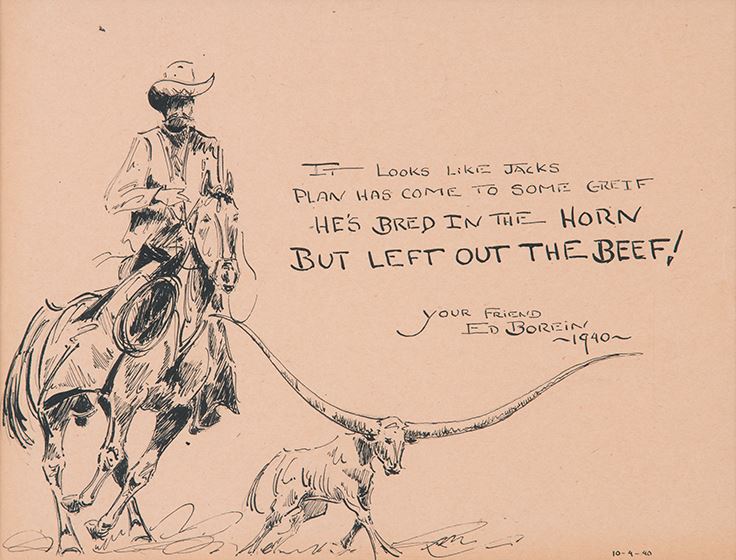 IT LOOKS LIKE JACKS
PLAN HAS COME TO SOME GREIF
HE'S BRED IN THE HORN
BUT LEFT OUT THE BEEF!
YOUR FRIEND
ED BOREIN
~1940~
10-9-40